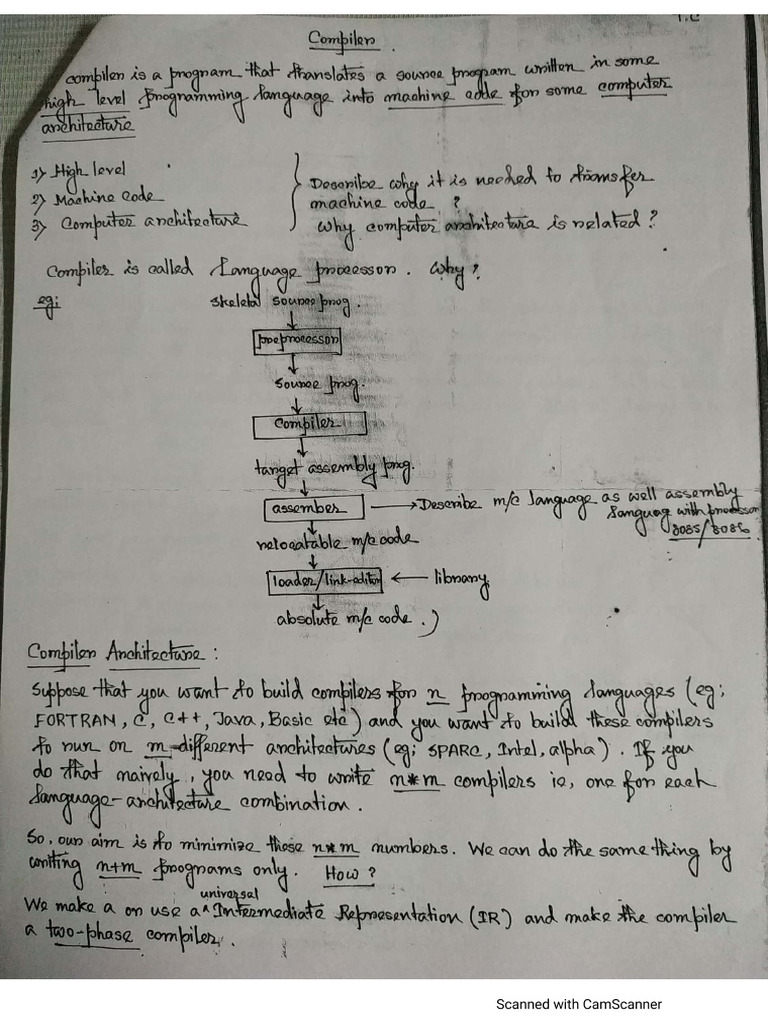 T.C
Compiler.
compiler is a program that translates a source program written in some
high level programming language into machine code for some computer
architecture
1) High level
2) Machine code
3) Computer architecture
Describe why it is needed to transfer
machine code ?
Why computer architecture is related ?
Compiler is called Language processor. Why ?
eg;
skeletal source prog.
preprocessor
source prog.
Compiler
target assembly prog.
assember
Describe m/c language as well assembly
language with processor
8085/8086
relocatable m/c code
loader/link-editor
library
absolute m/c code.)
Compiler Architecture :
Suppose that you want to build compilers for n programming languages (eg;
FORTRAN, C, C++, Java, Basic etc) and you want to build these compilers
to run on m-different architectures (eg; SPARC, Intel, alpha). If you
do that naively, you need to write n*m compilers ie, one for each
language-architecture combination.
So, our aim is to minimize those n*m numbers. We can do the same thing by
writing n+m programs only. How ?
universal
We make a or use a ^ Intermediate Representation (IR) and make the compiler
a two-phase compiler.
Scanned with CamScanner